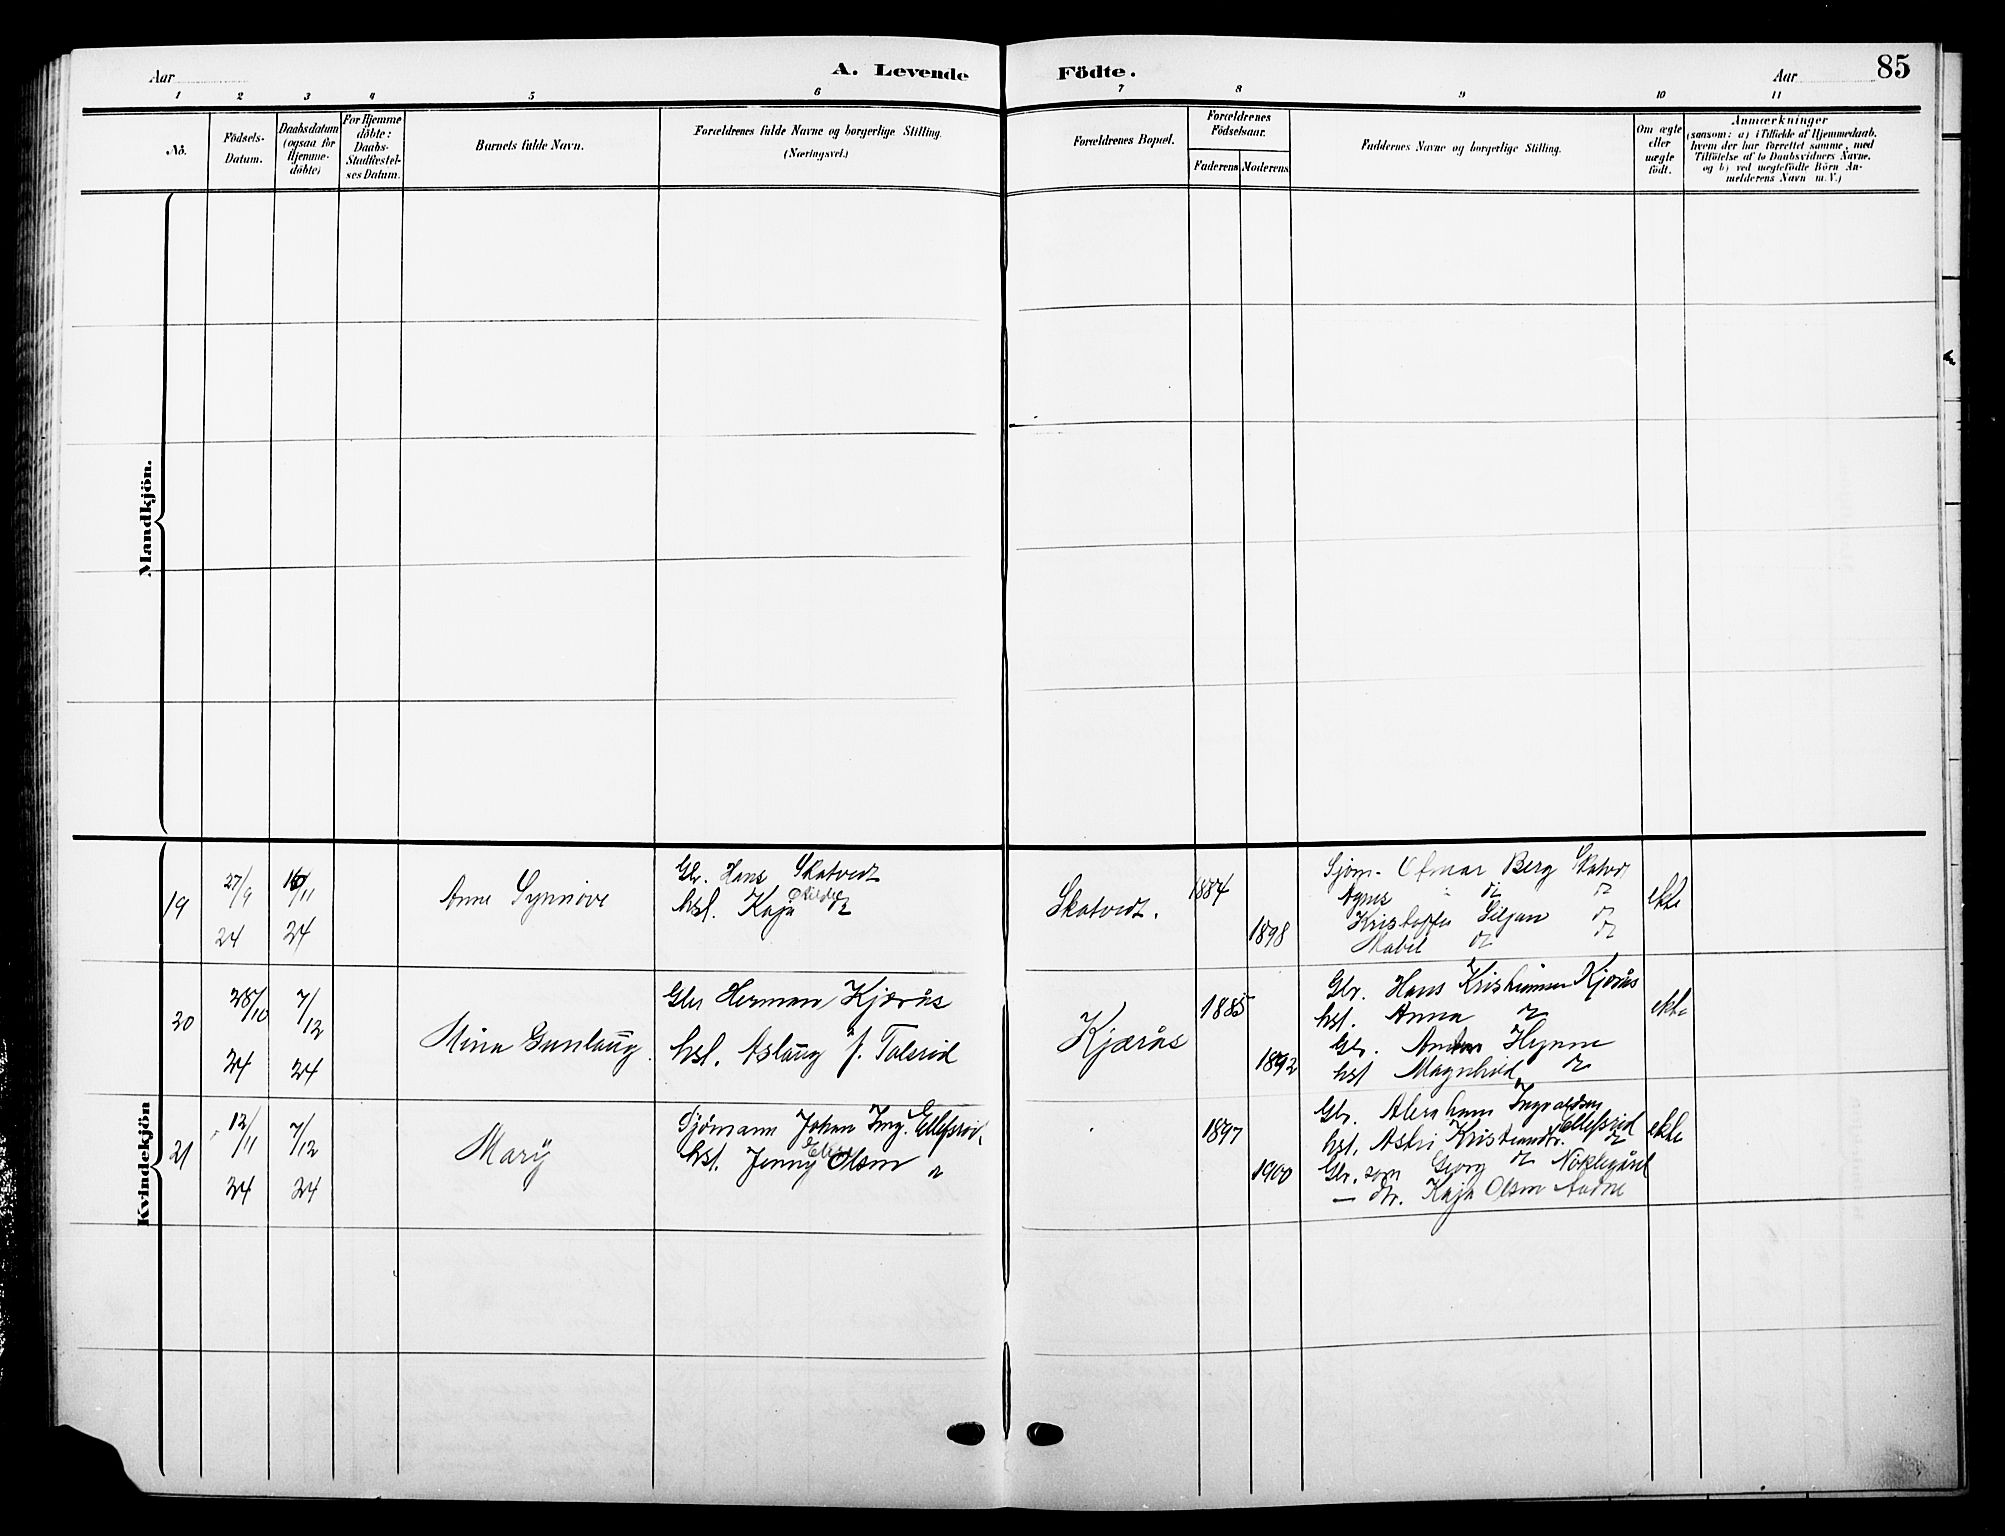 Aar
A. Levende Födte.
Aar
85
1 2 3 4 5 6 7 8 9 10 11
Nô.
Födsels-
Datum.
Daabsdatum
(ogsaa for
Hjemme-
døbte)
For Hjemme
døbte:
Daabs-
Stadfæstel-
ses Datum.
Barnets fulde Navn.
Forældrenes fulde Navne og borgerlige Stilling.
(Næringsvei.)
Forældrenes Bopæl.
Forældrenes
Födselsaar.
Faderens Moderens
Faddernes Navne og borgerlige Stilling.
Om ægte
eller
uægte
født.
Anmærkninger
(saasom: a) i Tilfælde af Hjemmedaab,
hvem der har forrettet samme, med
Tilföielse af to Daabsvidners Navne,
og b) ved uægtefødte Börn An-
melderens Navn m. V.)
Mandkjön.
Kvindekjön
19
27/9
24
16/11
24
Anne Synnöve
Gbr. Hans Skatvedt
hst. Kaja do
Skatvedt.
1884
1898
Sjöm. Otmar Berg Skatvedt
Agnes do do
Kristoffer Siljan do
Mabel do do
ekte
20
28/10
24
7/12
24
Mina Gunlaug
Gbr Herman Kjærås
hst. Aslaug f. Tolsrød
Kjærås
1885
1892
Gbr. Hans Kristiansen Kjærås
hst. Anna do
Gbr. Anton Hynne
hst Magnhild do
ekte
21
12/11
24
7/12
24
Mary
Sjømann Johan Ing. Ellefsrød
hst. Jenny Olsen "
1897
1900
Gbr. Abraham Ingvaldsen Ellefsrød
hst. Astri Kristiandr. do
Gbr. søn Georg do Nøklegård
— dtr. Kaja Olsen Aadne
ekte